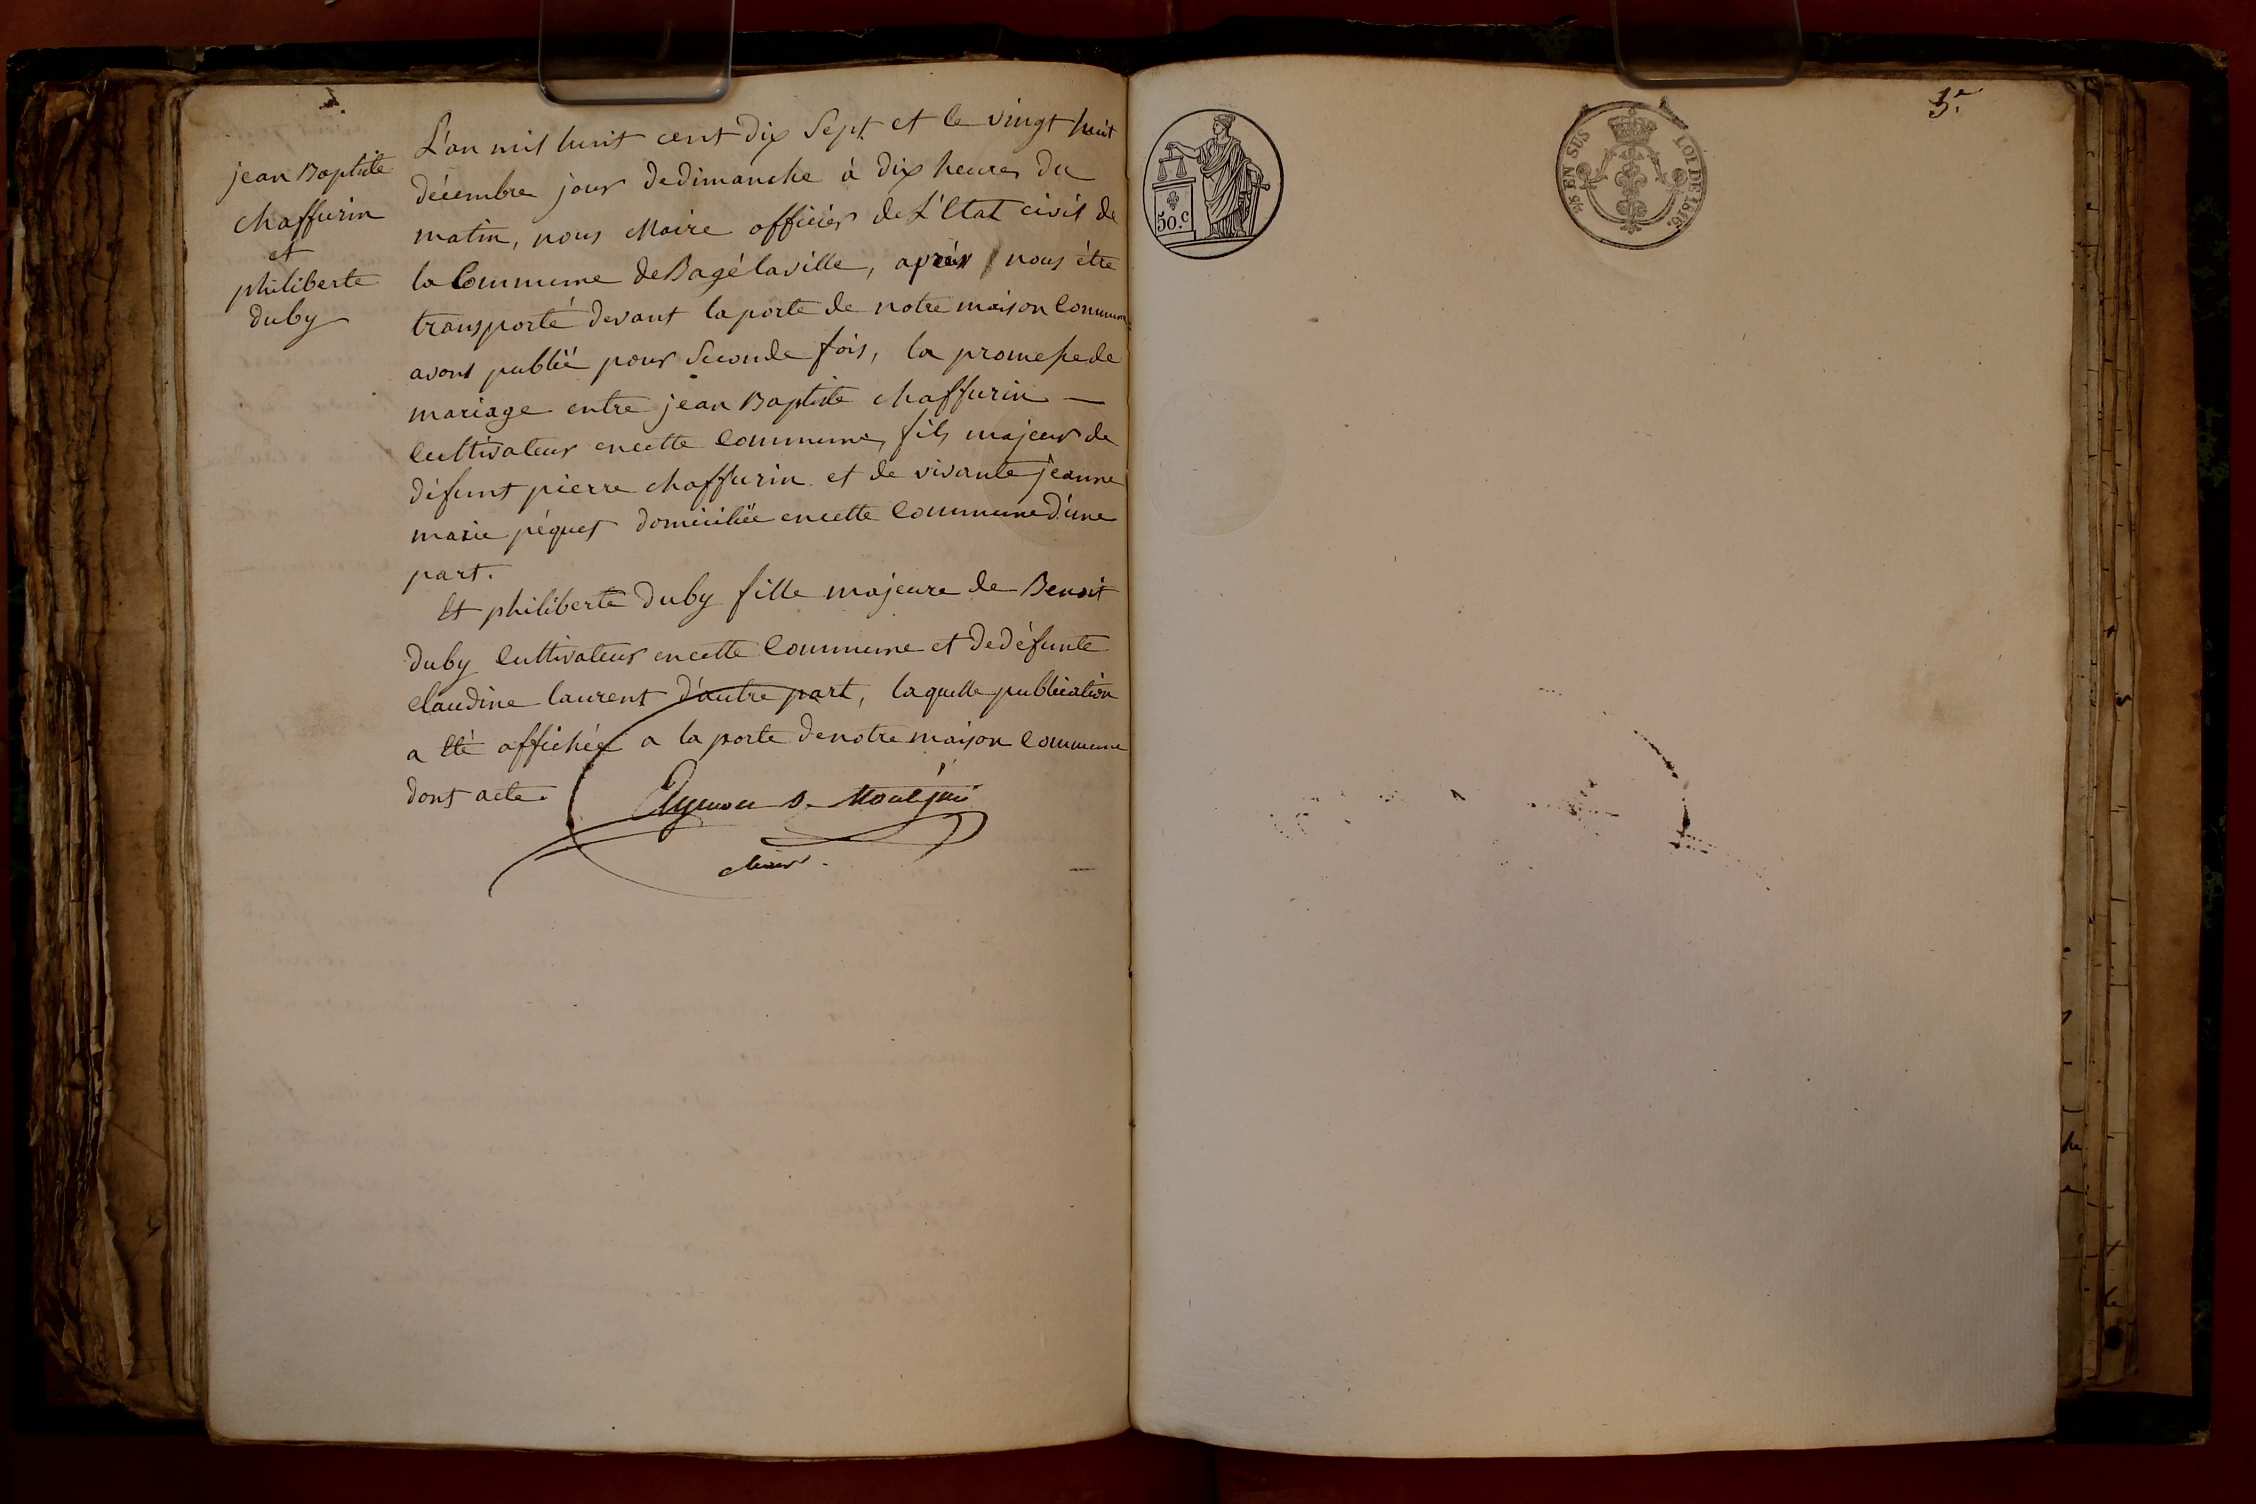 jean Baptiste
chaffurin
et
philiberte
duby
L'an mil huit cent dix Sept et le vingt huit
décembre jour de dimanche à dix heures du
matin, nous Maire officier de L'Etat civil de
la Commune de Bagé laville, après nous être
transporté devant la porte de notre maison Commune
avons publié pour Seconde fois, la promesse de
mariage entre jean Baptiste chaffurin —
Cultivateur en cette Commune, fils majeur de
défunt pierre chaffurin et de vivante jeanne
marie péquet domiciliée en cette Commune d'une
part.
Et philiberte duby fille majeure de Benoit
duby Cultivateur en cette Commune et de défunte
claudine laurent d'autre part, laquelle publication
a Eté affichée a la porte de notre maison Commune
dont acte.
Maire
50.c
5e.
EN SUS
LOI DE 1816.